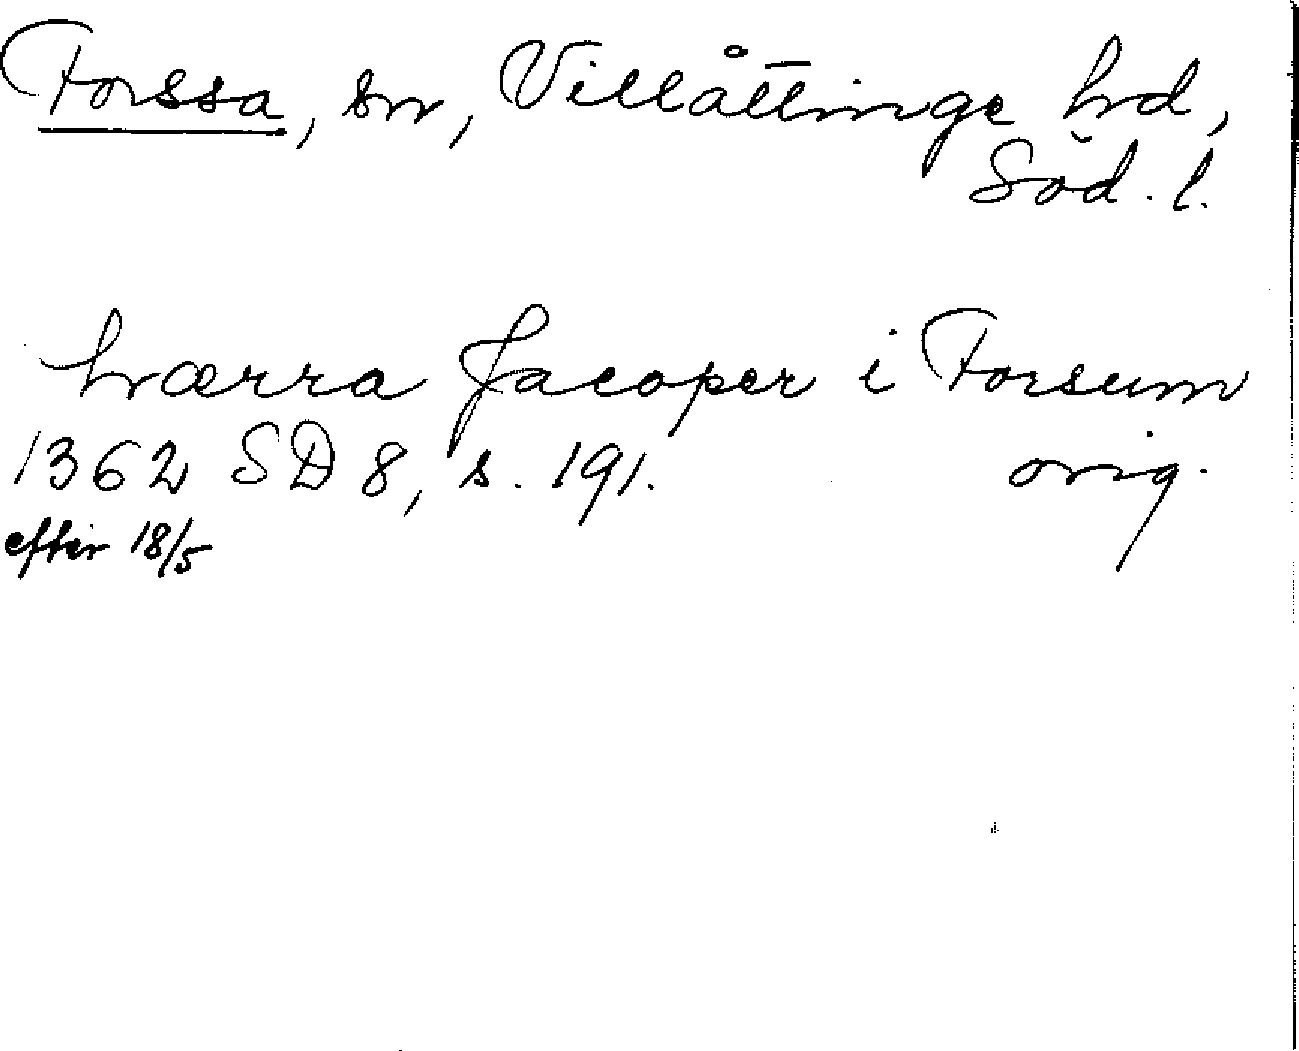 Forssa, sn, Villåttinge hd,
Söd. l.
hværra Jacoper i Forsum
1362 SD 8, s. 191. orig.
efter 18/5